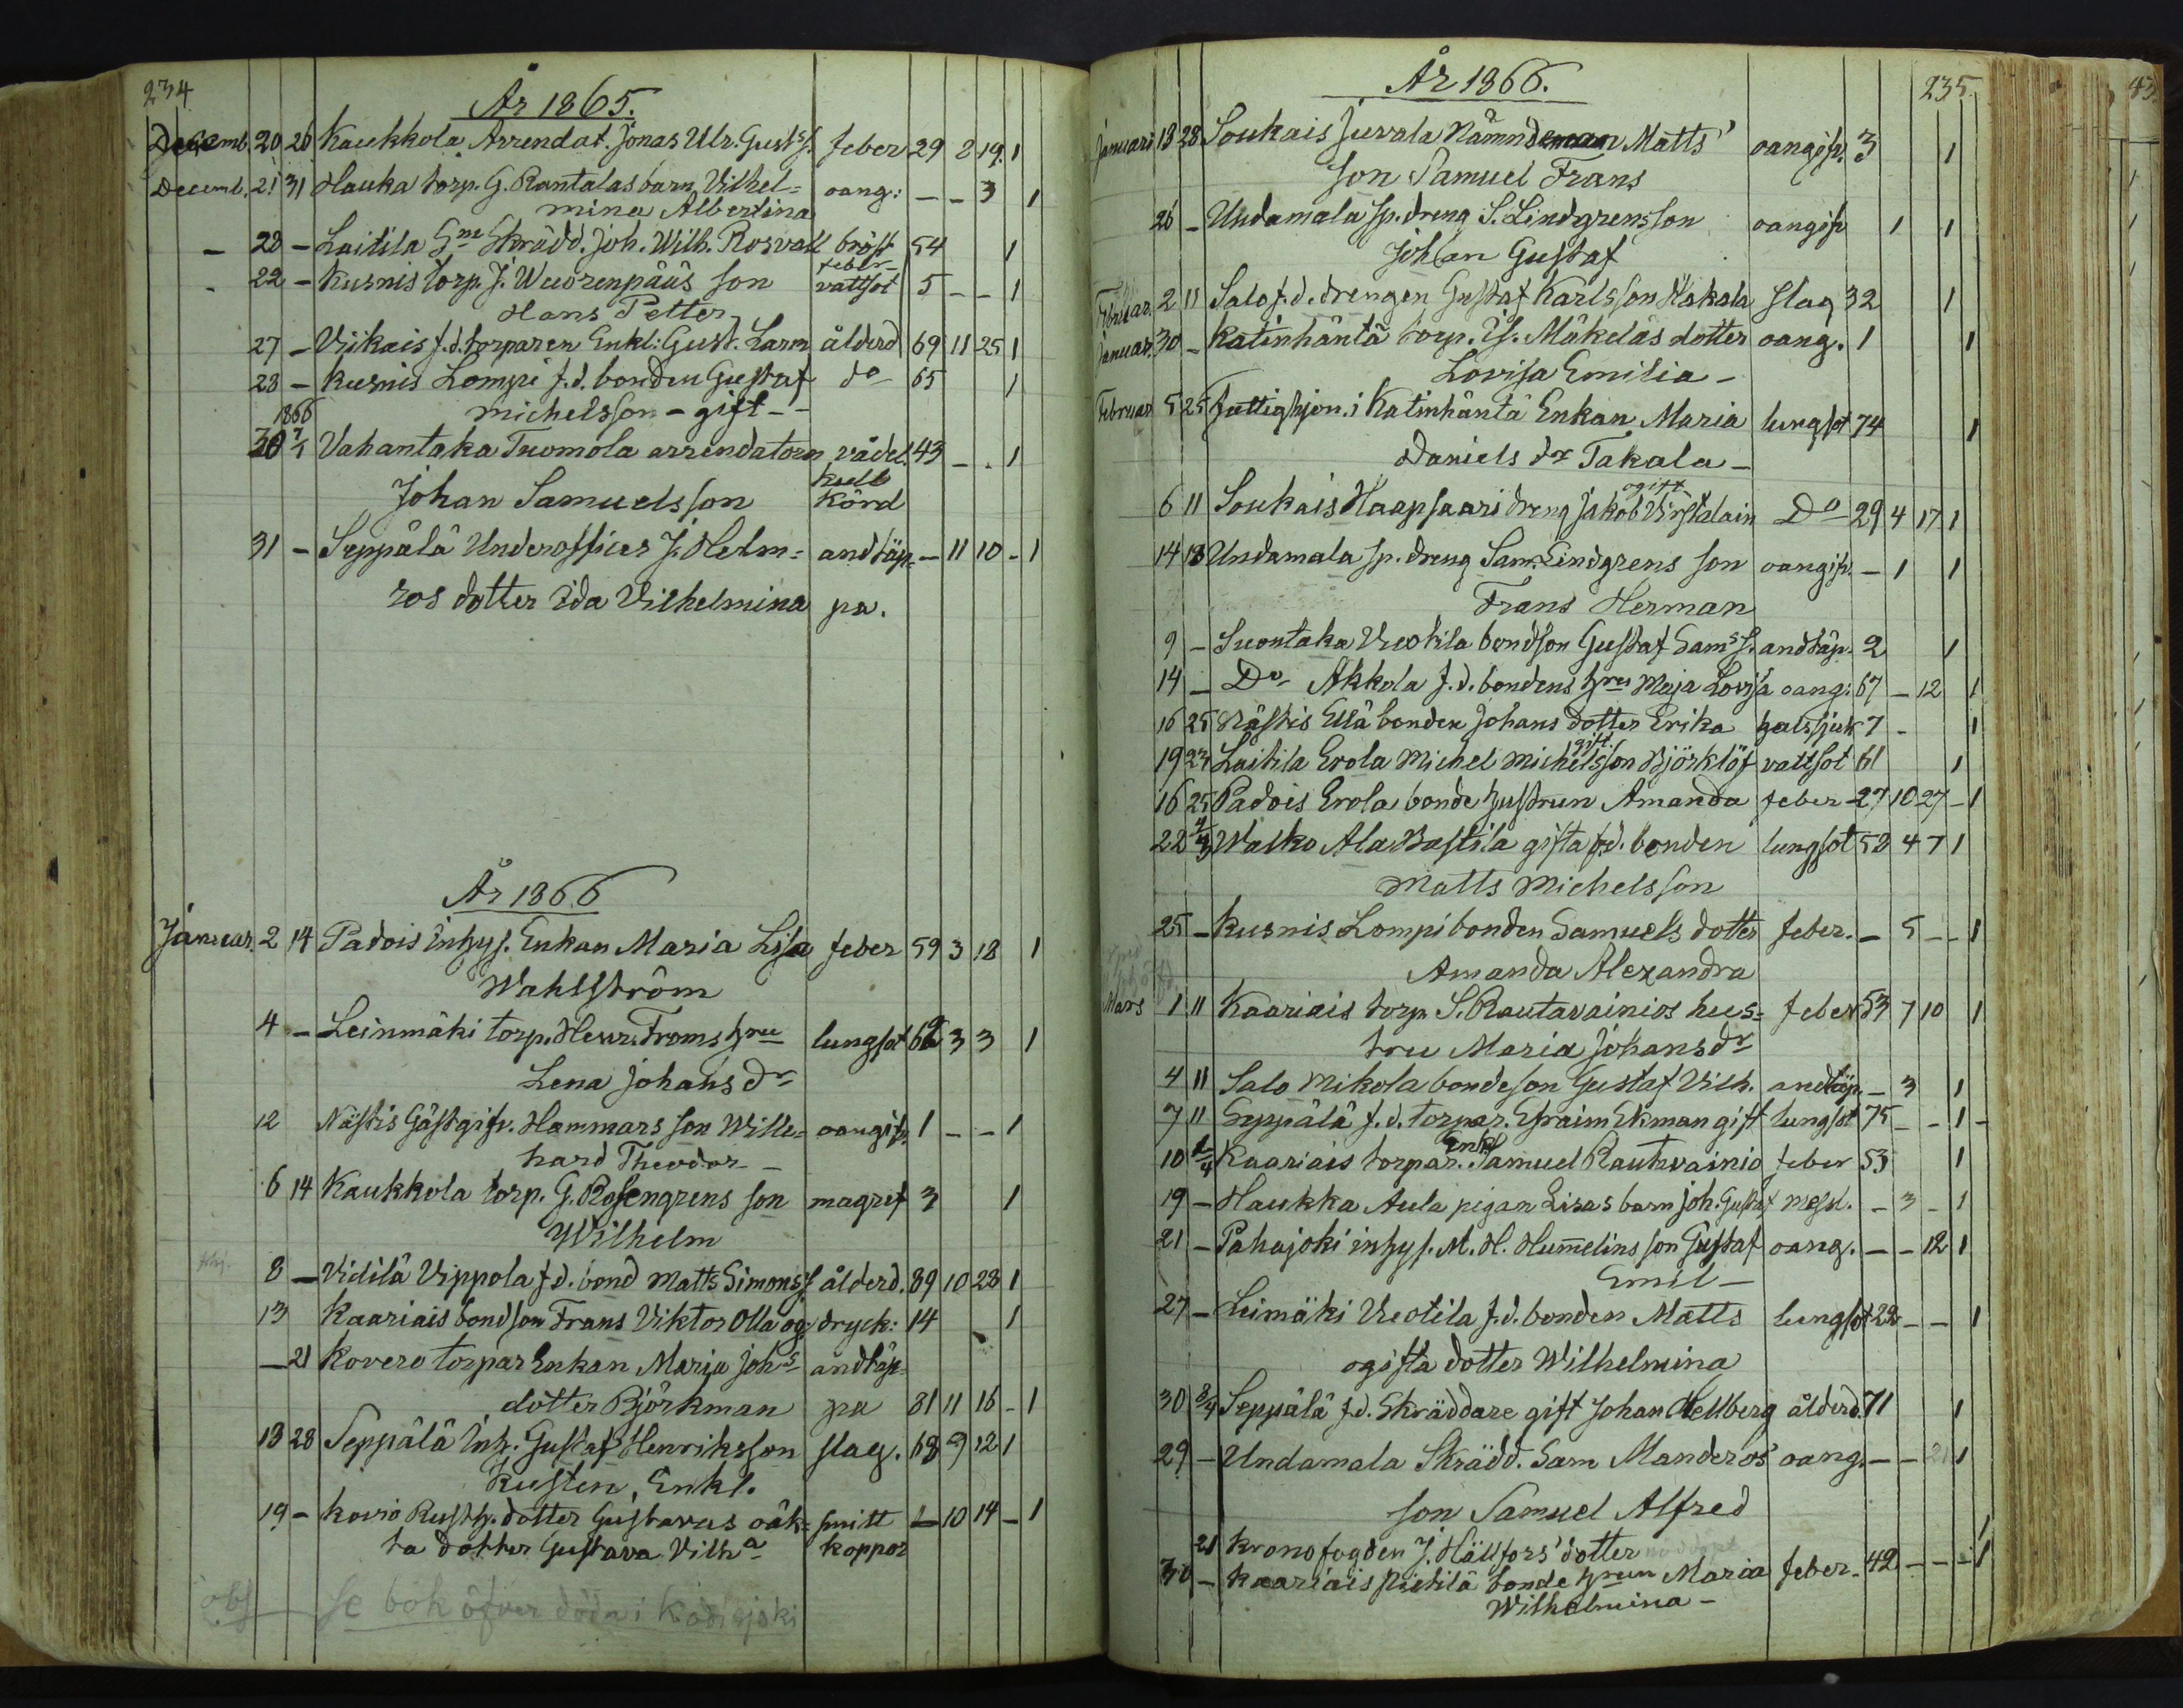 234
År 1865.
Decemb. 20 26 Kaukkola Arrendat. Jonas Ulr. Gustss. feber 29 2 19. 1
Decemb. 21 31 Hauka torp. G. Rantalas barn Vilhel= oang: — — 3 1
mina Albertina
— 23 — Laitila Sne Skrädd. Joh. Wilh. Rosvall bröst 54 1
feber
22 — Kusnis torp. J. Wuorenpääs son vattsot 5 — — 1
Hans Petter
27 — Viikais f.d. torparen Enkl: Gust. Larm ålderd 69 11 25 1
28 — Kusnis Lompi f.d. bonden Gustaf do 65 1
michelsson — gift —
1866
30 7/1 Vahantaka Tuomola arrendatorn vådel. 43 — . 1
kull
Johan Samuelsson körd
31 — Seppälä Underofficer J. Helm= andtäp= — 11 10 — 1
ros dotter Ida Vilhelmina pa.
År 1866
Januar. 2 14 Padois Inhys. Enkan Maria Lisa feber 59 3 18 1
Wahlström
4 — Leinmäki torp. Henr. Froms hru lungsot 62 3 3 1
Lena Johans dr
12 Nästis Gästgifv. Hammars son Wille= oangifv. 1 — — 1
hard Theodor —
6 14 Kaukkola torp. G. Rosengrens son magref 3 1
Wilhelm
8 — Vidilä Vippola f.d. bond Matts Simonss. ålderd. 89 10 28 1
13 Kaariais bondson Frans Viktor Olla og. dryck: 14 1
— 21 Kovero torpar Enkan Marja Johs andtäp=
dotter Björkman pa 81 11 16 — 1
13 28 Seppälä Inh. Gustaf Henriksson slag. 68 9 12 1
Kusten, Enkl.
19 — Kovio Rusth. dotter Gustavas oäk= smitt 1 10 14 — 1
ta dotter Gustava Vilha koppor
obs se bok öfver döda i Kodisjoki
År 1866.
235
Januari 13 28 Soukais Juvala Nämndeman Matts' oangifv. 3 1
son Samuel Frans
26 — Undamala sp. dreng S. Lindgrens son oangifv 1 1
Johan Gustaf
Februar. 2 11 Salo f.d. drengen Gustaf Karlsson Hakala slag 32 1
Januar. 30 — Katinhäntä torp. Is. Mäkeläs dotter oang. 1 1
Lovisa Emilia —
Februar 5 25 fattighjon. i Katinhäntä Enkan Maria lungsot 74 1
Daniels dr Takala —
ogift
6 11 Soukais Haapsaari dreng Jakob Virstalain Do 29 4 17 1
14 18 Undamala sp. dreng Sam. Lindgrens son oangifv. — 1 1
Frans Herman
9 — Suontaka Uotila bondson Gustaf Sams s. andtäp. 2 1
14 — Do Akkola f.d. bondens hru Maja Lovisa oang: 67 — 12 1
16 25 Nästis Ellä bonden Johans dotter Erika halssjuk 7 — 1
gift
19 23 Laitila Erola Michel Michelsson Björklöf vattsot 61 1
16 25 Padois Erola bonde hustrun Amanda feber 27 10 27 — 1
22 4/3 Walko Ala Bastila gifta f.d. bonden lungsot 52 4 7 1
Matts Michelsson
25 — Kusnis Lompi bonden Samuels dotter feber. — 5 — — 1
Amanda Alexandra
Mars 1 11 Kaariais torp. S. Rautavainios hus= feber 53 7 10 1
tru Maria Johans dr
4 11 Salo Mikola bondeson Gustaf Vilh. andtäp. — 3 1
7 11 Seppälä f.d. torpar. Efraim Ekman gift lungsot 75 — — 1 —
Enkl
10 2/4 Kaariais torpar. Samuel Rautvainio feber 53 1
19 — Haukka Aula pigan Lisas barn Joh. Gustaf messl. — 3 — 1
21 — Pahajoki inhys. M. H. Hum̄elins son Gustaf oang. — — 12 1
Emil —
27 — Leimäki Uotila f.d. bonden Matts lungsot 22 — — 1
ogifta dotter Wilhelmina
30 8/4 Seppälä f.d. Skräddare gift Johan Hellberg ålderd. 71 1
29 — Undamala Skrädd. Sam Manderos' oang. — — 21 1
son Samuel Alfred
21 Kronofogden J. Hällfors' dotter 1
30 — Kaariais Pietilä bonde hrun Maria feber. 42 — — — 1
Wilhelmina —
43